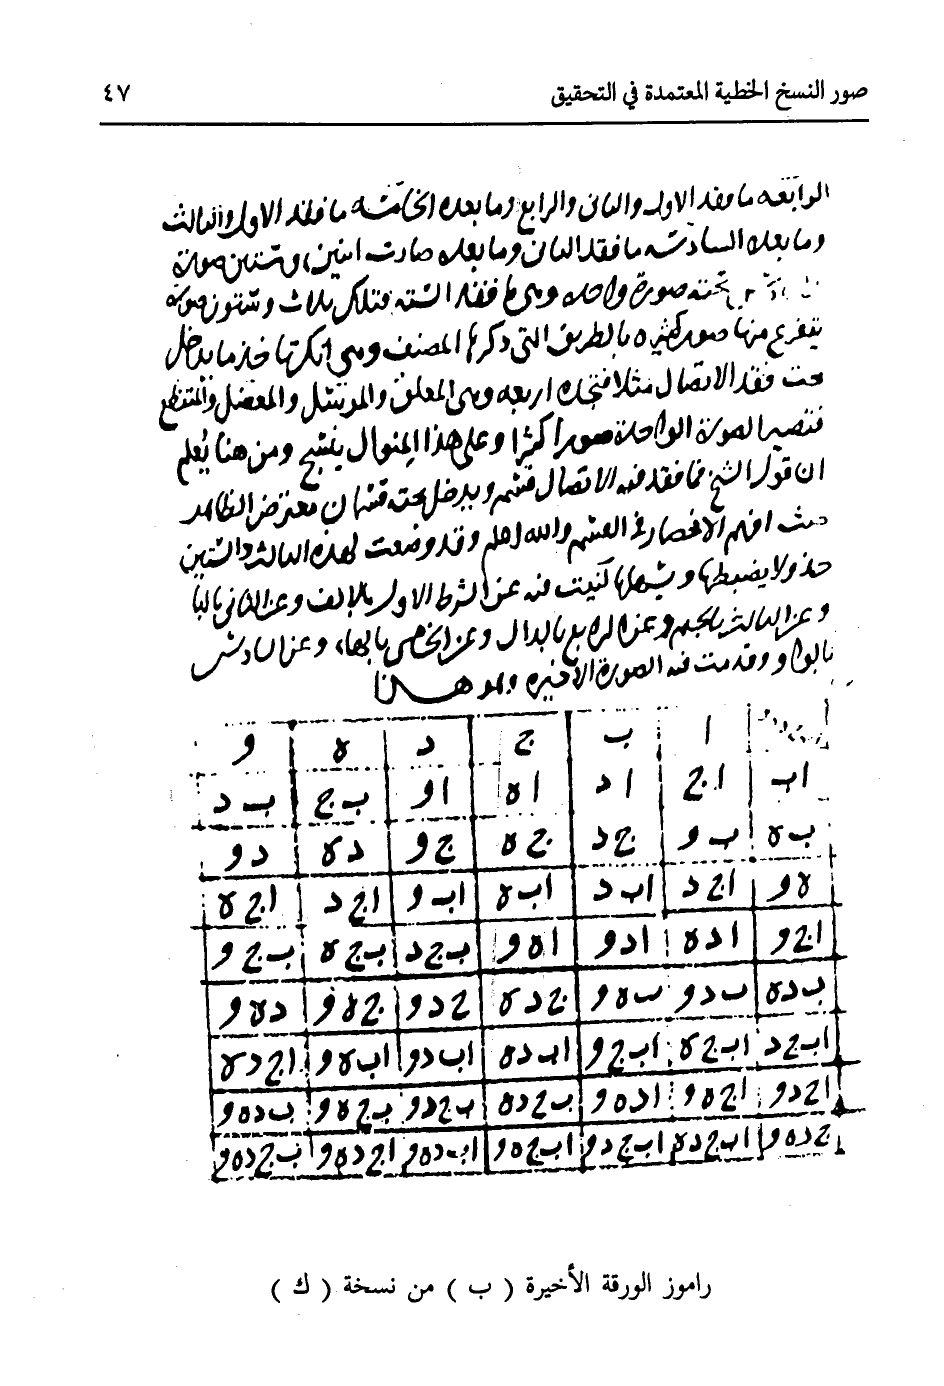 صور النسخ الخطية المعتمدة في التحقيق ٤٧
الرابعه ما فقد الاول والثانى والرابع وما بعده الخامسه ما فقد الاول والثالث
وما بعده السادسه ما فقد الثانى وما بعده صارت اثنين وستين صورة
تحته صورة واحده وهى ما فقد السته فتلك ثلاث وستون صوره
يتفرع منها صور كثيره بالطريق التى ذكرها المصنف وهى انك تاخذ ما يدخل
تحت فقد الاتصال مثلا فتجده اربعه وهى المعلق والمرسل والمعضل والمنقطع
فتصير الصورة الواحدة صورا كثيرا وعلى هذا المنوال ينسج ومن هنا يُعلم
ان قول الشيخ فما فقد فيه الاتصال قسم ويدخل تحته قسمان معترض الظاهر
حيث افهم الانحصار فى القسم والله اعلم وقد وضعت لهذه الثالث والستين
جدولا يضبطها ويشملها كنيت فيه عن الشرط الاول بالالف وعن الثانى بالبا
وعن الثالث بالجيم وعن الرابع بالدال وعن الخامس بالهاء وعن السادس
بالواو وقدمت فيه الصورة الاخيره وهو هـذا
ا ب ج د ه و
اب اج اد اه او ب ج ب د
ب ه ب و ج د ج ه ج و د ه د و
ه و اج د اب د اب ه اب و اج د اج ه
اج و اد ه اد و اه و ب ج د ب ج ه ب ج و
ب د ه ب د و ب ه و ج د ه ج د و ج ه و د ه و
اب ج د اب ج ه اب ج و اب د ه اب د و اب ه و اج د ه
اج د و اج ه و اد ه و ب ج د ه ب ج د و ب ج ه و ب د ه و
ج د ه و اب ج د ه اب ج د و اب ج ه و اب د ه و اج د ه و ب ج د ه و
راموز الورقة الأخيرة ( ب ) من نسخة ( ك )